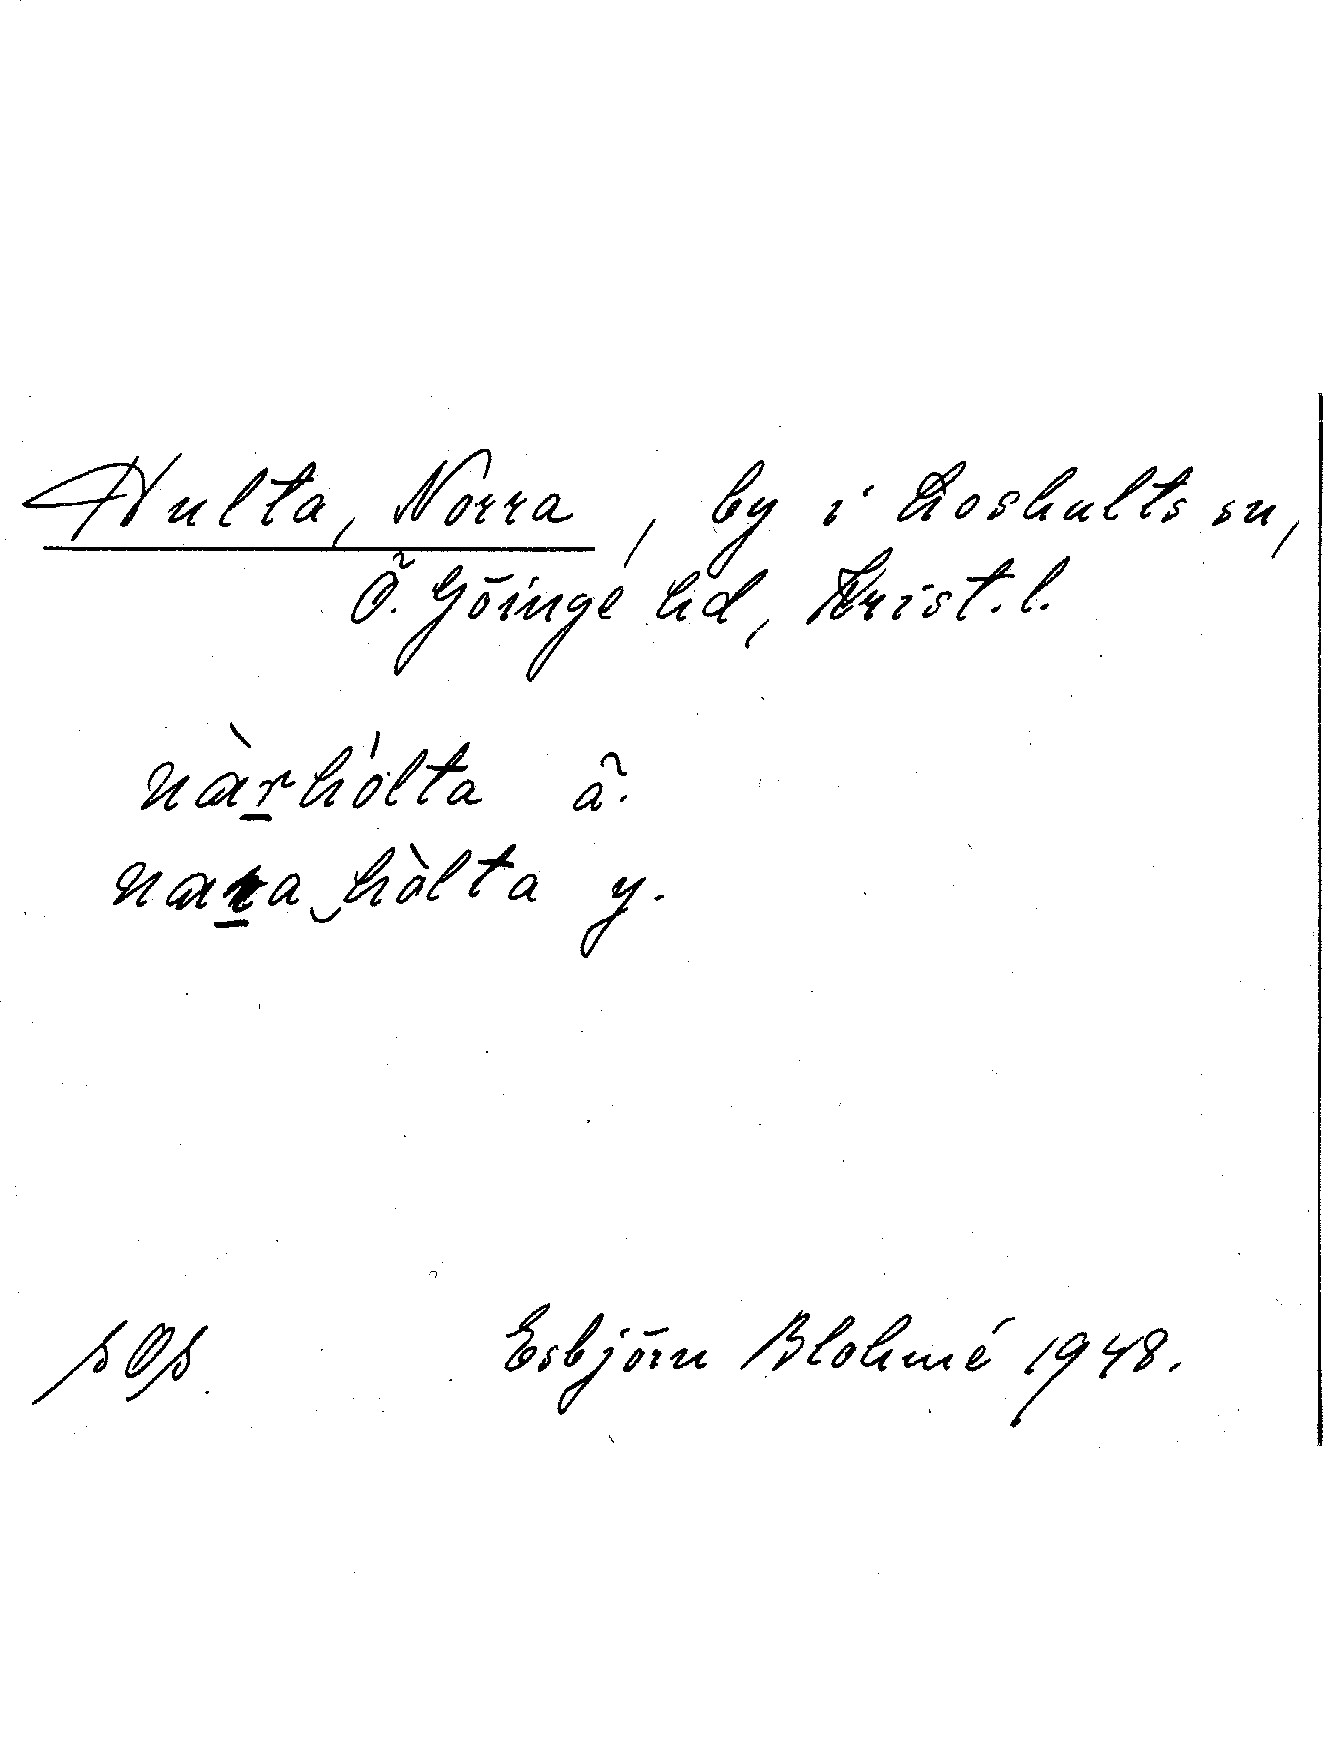 Hulta, Norra, by i Loshults sn,
Ö. Göinge hd, Krist. l.
nàrhólta ä.
nara‿hòlta y.
SOS Esbjörn Blohmé 1948.